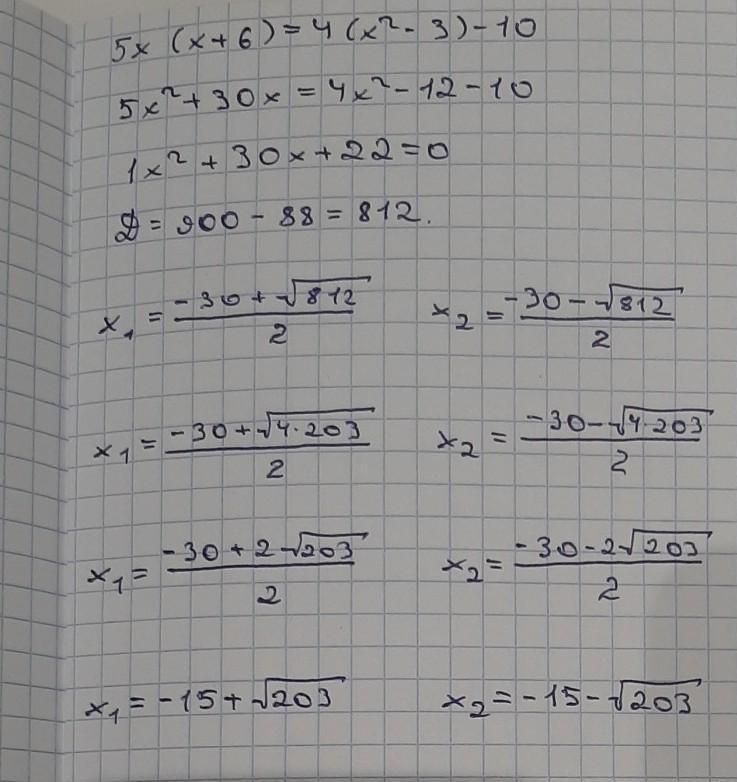 5x (x+6) = 4 (x² - 3) - 10
5x² + 30x = 4x² - 12 - 10
1x² + 30x + 22 = 0
D = 900 - 88 = 812.
x₁ = (-30 + √812)/2 x₂ = (-30 - √812)/2
x₁ = (-30 + √(4·203))/2 x₂ = (-30 - √(4·203))/2
x₁ = (-30 + 2√203)/2 x₂ = (-30 - 2√203)/2
x₁ = -15 + √203 x₂ = -15 - √203